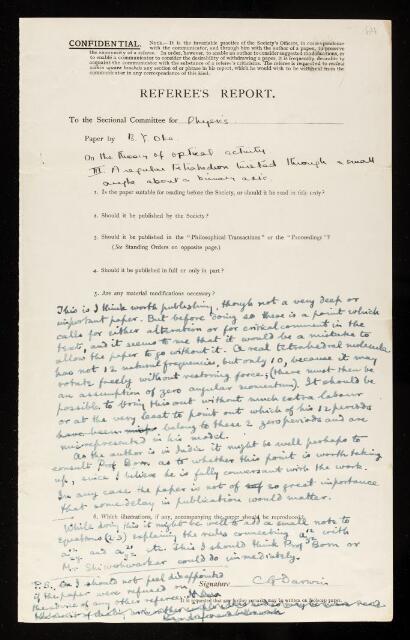 CONFIDENTIAL. NOTE.—It is the invariable practice of the Society's Officers, in correspondence
with the communicator, and through him with the author of a paper, to preserve
the anonymity of a referee. In order, however, to enable an author to consider suggested modifications, or
to enable a communicator to consider the desirability of withdrawing a paper, it is frequently desirable to
acquaint the communicator with the substance of a referee's criticisms. The referee is requested to enclose
within square brackets any section of or phrase in his report, which he would wish to be withheld from the
communicator in any correspondence of this kind.
REFEREE'S REPORT.
To the Sectional Committee for Physics
Paper by B. Y. Oke
On the theory of optical activity
III. A regular tetrahedron twisted through a small
angle about a binary axis.
1. Is the paper suitable for reading before the Society, or should it be read in title only?
2. Should it be published by the Society?
3. Should it be published in the "Philosophical Transactions" or the "Proceedings"?
(See Standing Orders on opposite page.)
4. Should it be published in full or only in part?
5. Are any material modifications necessary?
This is I think worth publishing, though not a very deep or
important paper. But before doing so there is a point which
calls for either alteration or for critical comment in the
text, and it seems to me that it would be a mistake to
allow the paper to go without it. A real tetrahedral molecule
has not 12 natural frequencies, but only 10, because it may
rotate freely without restoring force; (there must then be
an assumption of zero angular momentum). It should be
possible to bring this out without much extra labour
or at the very least to point out which of his 12 periods
have been belong to these 2 zero periods and are
misrepresented in his model.
As the author is in India it might be well perhaps to
consult Prof Born as to whether this point is worth taking
up, since I believe he is fully conversant with the work.
In any case the paper is not of so great importance
that some delay in publication would matter.
6. Which illustrations, if any, accompanying the paper should be reproduced?
While doing this it might be well to add a small note to
equations (2.3) explaining the rules connecting with
and etc. This I should think Prof Born or
Mr Shiwoshwarker could do immediately.
P.S. On I should not feel disappointed
if the paper were refused
the advice of any other referee.
Signature C G Darwin
It is requested that any further remarks may be written on foolscap paper.